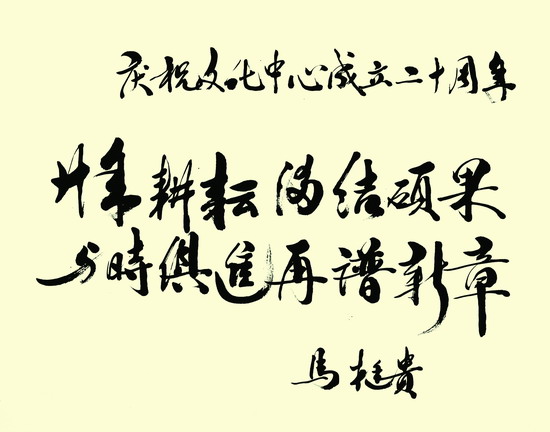 庆祝文化中心成立二十周年
廿年耕耘满结硕果
与時俱進再谱新章
馬挺贵